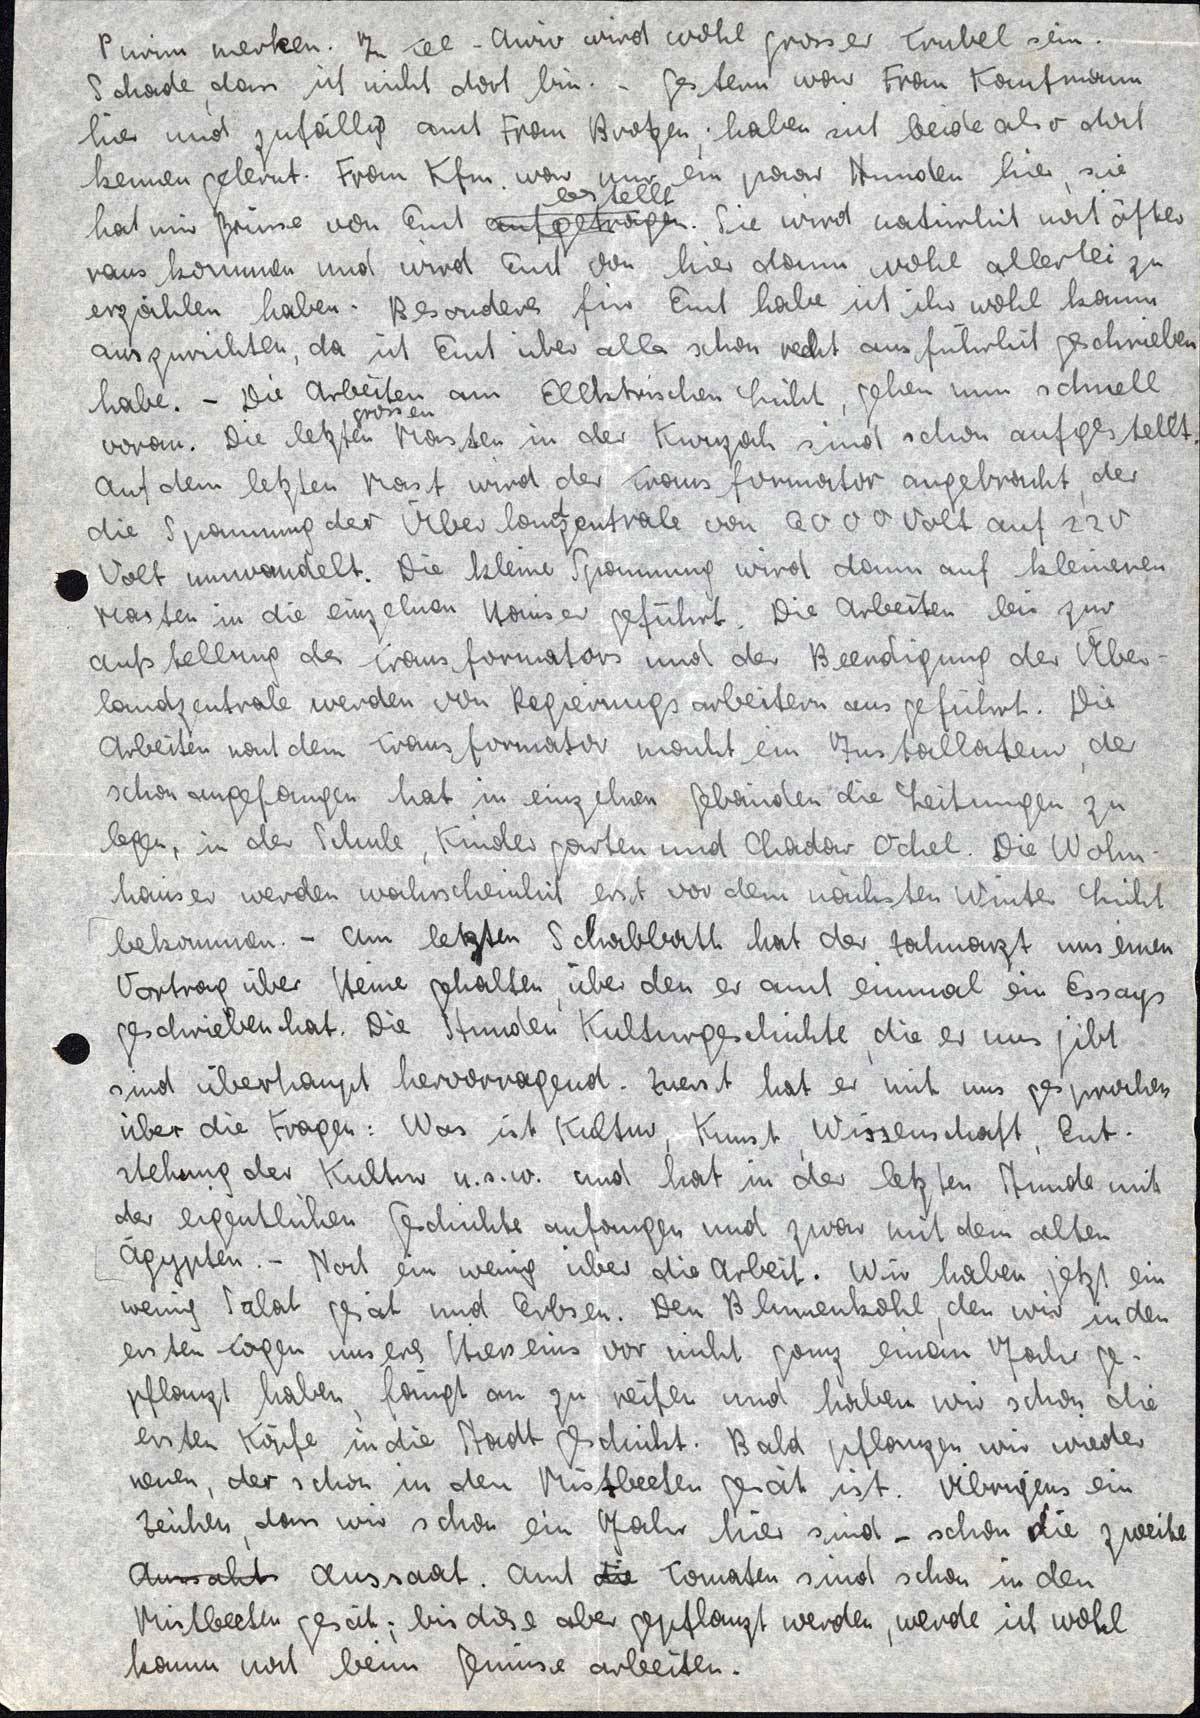 Purim merken. In Tel-Awiw wird wohl grosser Trubel sein.
Schade, dass ich nicht dort bin. - Gestern war Frau Kaufmann
hier und zufällig auch Frau Brotzen; haben sich beide also dort
kennen gelernt. Frau Kfm. war nur ein paar Stunden hier, sie
hat mir Grüsse von Euch aufgetragen bestellt. Sie wird natürlich noch öfter
raus kommen und wird Euch von hier dann wohl allerlei zu
erzählen haben. Besonderes für Euch habe ich ihr wohl kaum
auszurichten, da ich Euch über alles schon recht ausführlich geschrieben
habe. - Die Arbeiten am Elektrischen Licht, gehen nun schnell
voran. Die letzten grossen Masten in der Kwuzah sind schon aufgestellt.
Auf dem letzten Mast wird der Transformator angebracht, der
die Spannung der Überlandzentrale von 6000 Volt auf 220
Volt umwandelt. Die kleine Spannung wird dann auf kleineren
Masten in die einzelnen Häuser geführt. Die Arbeiten bis zur
Aufstellung des Transformators und der Beendigung der Über-
landzentrale werden von Regierungsarbeitern ausgeführt. Die
Arbeiten nach dem Transformator macht ein Installateur, der
schon angefangen hat in einzelnen Gebäuden die Leitungen zu
legen, in der Schule, Kindergarten und Chadar Ochel. Die Wohn-
häuser werden wahrscheinlich erst vor dem nächsten Winter Licht
bekommen. - Am letzten Schabbath hat der Zahnarzt uns einen
Vortrag über Heine gehalten, über den er auch einmal ein Essays
geschrieben hat. Die Stunden Kulturgeschichte, die er uns jibt
sind überhaupt hervorragend. Zuerst hat er mit uns gesprochen
über die Fragen: Was ist Kultur, Kunst, Wissenschaft, Ent-
stehung der Kultur u.s.w. und hat in der letzten Stunde mit
der eigentlichen Geschichte anfangen und zwar mit dem alten
Ägypten. - Noch ein wenig über die Arbeit. Wir haben jetzt ein
wenig Salat gesät und Erbsen. Den Blumenkohl, den wir in den
ersten Tagen unseres Hierseins vor nicht ganz einem Jahr ge-
pflanzt haben, fängt an zu reifen und haben wir schon die
ersten Köpfe in die Stadt geschickt. Bald pflanzen wir wieder
neuen, der schon in den Mistbeeten gesät ist. Übrigens ein
Zeichen, dass wir schon ein Jahr hier sind - schon die zweite
Aussaht Aussaat. Auch die Tomaten sind schon in den
Mistbeeten gesät; bis diese aber gepflanzt werden, werde ich wohl
kaum noch beim Gemüse arbeiten.